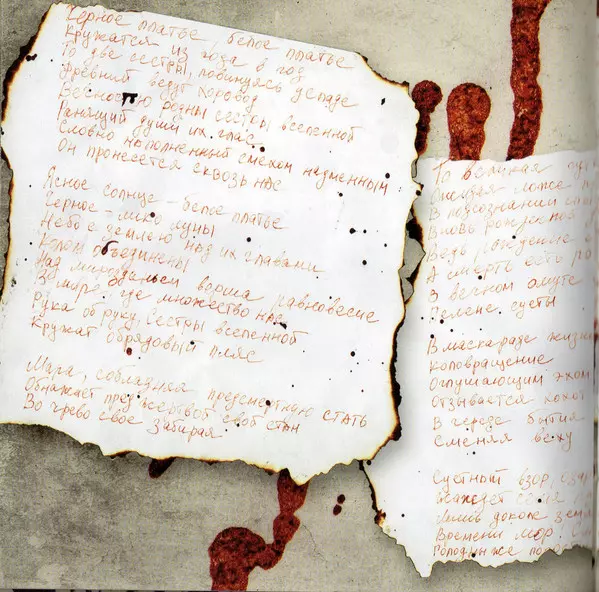 Черное платье, белое платье
Кружатся из года в год
То две сестры, повинуясь
Древний ведут хоровод
Вечностью родны сестры вселенной
Ранящий души их глас
Словно наполненный смехом надменным
Он пронесётся сквозь нас
Ясное солнце - белое платье
Черное - лико луны
Небо с землею над их главами
Колом объединены
Над мирозданьем верша равновесие
В мире, где множество нас
Рука об руку, сестры вселенной
Кружат обрядовый пляс
Мара, собладняя предсмертную стать
Обнажает пред жертвой свой стан
Во чрево своё забирая
То великая
ложе
В подсознании
Вновь
Ведь, рождение
А смерть есть
В вечном омуте
Пелене суеты
В маскараде жизни
Коловращение
Оглушающим эхом
Отзывается хохот
В череде бытия
Сменяя веху
взор,
себя
Лишь доколе
Времени мор.
же